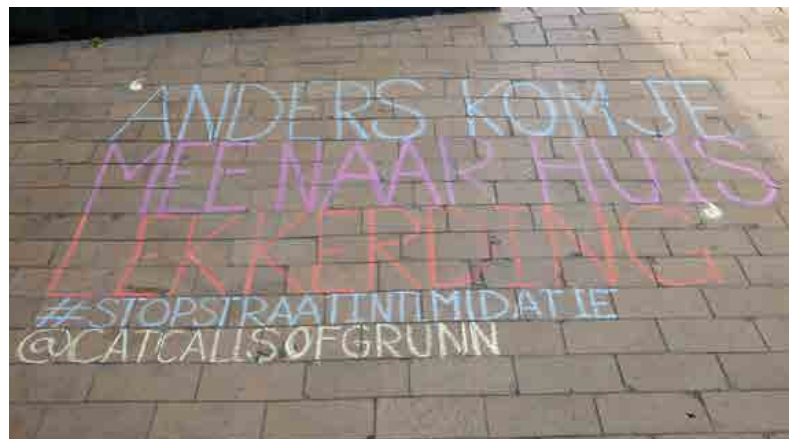 “ANDERS KOM JE
MEE NAAR HUIS
LEKKERDING”
#STOPSTRAATINTIMIDATIE
@CATCALLSOFGRUNN